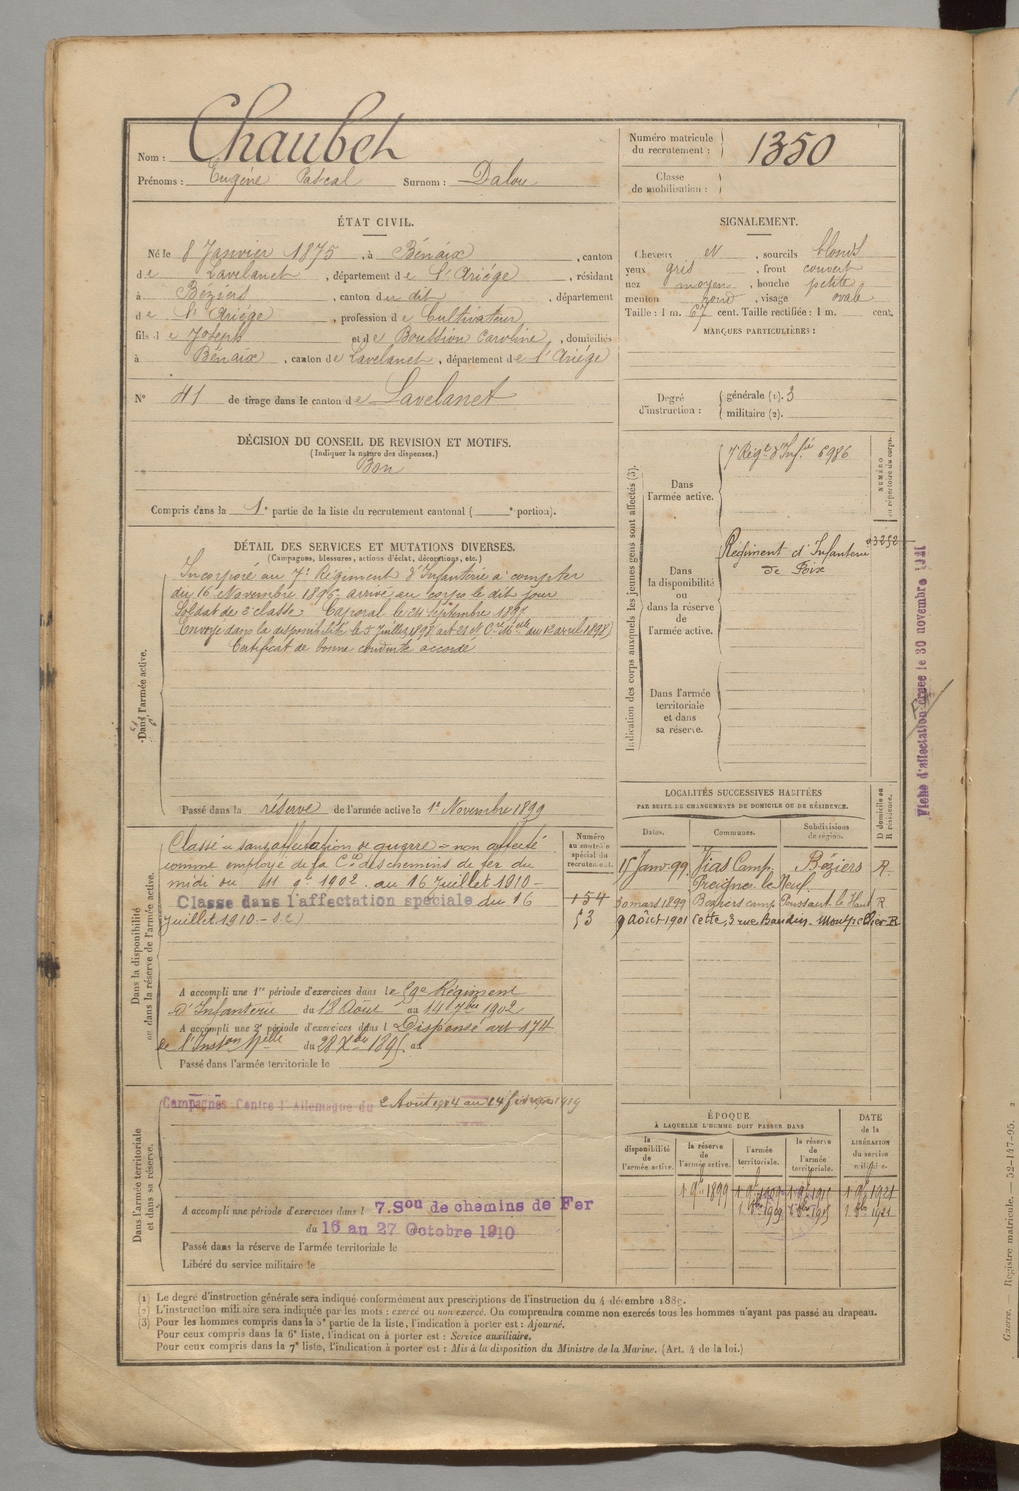 Nom : Chaubet
Prénoms : Eugène Pascal Surnom : Dalou
Numéro matricule du recrutement : 1350
Classe de mobilisation :
ÉTAT CIVIL.
Né le 8 Janvier 1875, à Bénaix, canton
de Lavelanet, département de l'Ariége, résidant
à Béziers, canton du dit, département
de l'Ariége, profession de Cultivateur
fils de Joseph et de Boussion Caroline, domiciliés
à Bénaix, canton de Lavelanet, département de l'Ariége
N° 41 de tirage dans le canton de Lavelanet
SIGNALEMENT.
Cheveux et, sourcils blonds
yeux gris, front couvert
nez moyen, bouche petite
menton rond, visage ovale
Taille : 1 m. 67 cent. Taille rectifiée : 1 m. cent.
MARQUES PARTICULIÈRES :
Degré d'instruction : générale (1). 3
militaire (2).
DÉCISION DU CONSEIL DE REVISION ET MOTIFS.
(Indiquer la nature des dispenses.)
Bon
Compris dans la 1e partie de la liste du recrutement cantonal ( e portion).
DÉTAIL DES SERVICES ET MUTATIONS DIVERSES.
(Campagnes, blessures, actions d'éclat, décorations, etc.)
Dans l'armée active.
Incorporé au 7e Régiment d'Infanterie à compter
du 16 Novembre 1896, arrivé au corps le dit jour
Soldat de 2e classe. Caporal le 24 Septembre 1897
Envoyé dans la disponibilité le 5 Juillet 1898 du 12 avril 1898)
Certificat de bonne conduite accordé
Passé dans la réserve de l'armée active le 1er Novembre 1899
Indication des corps auxquels les jeunes gens sont affectés (3).
NUMÉRO au répertoire du corps.
Dans l'armée active.
7e Régt d'Infie 6986
Dans la disponibilité ou dans la réserve de l'armée active.
Régiment d'Infanterie
de Foix
Dans l'armée territoriale et dans sa réserve.
Fiche d'affectation créée le 30 novembre 1921
Dans la disponibilité ou dans la réserve de l'armée active.
Classé « sans affectation de guerre » non affecté
comme employé de la Cie des chemins de fer du
midi du 11 9e 1902 au 16 Juillet 1910 -
Classé dans l'affectation spéciale du 16
Juillet 1910 -
A accompli une 1re période d'exercices dans le Régiment
d'Infanterie du 18 Août au 14 7bre 1902
A accompli une 2e période d'exercices dans l Dispensé art 174
de l'Inston Melle du 28 Xbre 1895 au
Passé dans l'armée territoriale le
Numéro au contrôle spécial du recrutement.
154
53
LOCALITÉS SUCCESSIVES HABITÉES
PAR SUITE DE CHANGEMENTS DE DOMICILE OU DE RÉSIDENCE.
Dates. Communes. Subdivisions de région. D domicile ou R résidence.
15 Janv. 99. Vias Camp. Béziers R.
Preignes le Neuf.
30 mars 1899 Beziers camp Poussant le Haut R
9 Août 1901 Cette, 3 rue Baudin. Montpellier R
Dans l'armée territoriale et dans sa réserve.
Campagnes Contre l'Allemagne du 2 Août 1914 au 14 février 1919
A accompli une période d'exercices dans l 7. Son de chemins de Fer
du 16 au 27 Octobre 1910
Passé dans la réserve de l'armée territoriale le
Libéré du service militaire le
ÉPOQUE
À LAQUELLE L'HOMME DOIT PASSER DANS
la disponibilité de l'armée active.
la réserve de l'armée active.
l'armée territoriale.
la réserve de l'armée territoriale.
DATE de la LIBÉRATION du service militaire.
1 9e 1899 1 9e 1921
(1) Le degré d'instruction générale sera indiqué conformément aux prescriptions de l'instruction du 4 décembre 1889.
(2) L'instruction militaire sera indiquée par les mots : exercé ou non exercé. On comprendra comme non exercés tous les hommes n'ayant pas passé au drapeau.
(3) Pour les hommes compris dans la 5e partie de la liste, l'indication à porter est : Ajourné.
Pour ceux compris dans la 6e liste, l'indication à porter est : Service auxiliaire.
Pour ceux compris dans la 7e liste, l'indication à porter est : Mis à la disposition du Ministre de la Marine. (Art. 4 de la loi.)
Guerre. — Registre matricule. — 52-147-95.